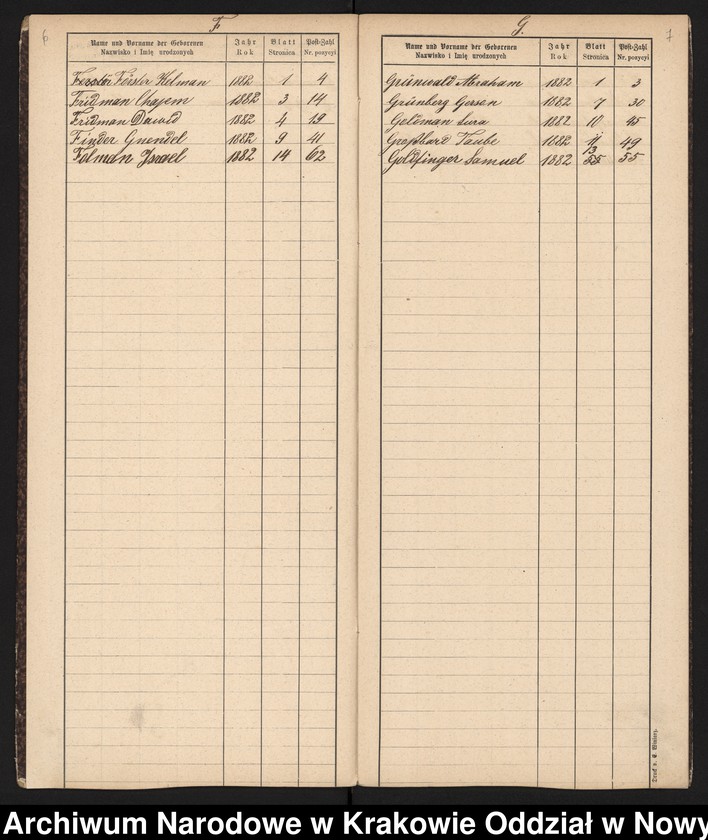 6
F
Name und Vorname der Geborenen
Nazwisko i Imię urodzonych
Jahr
Rok
Blatt
Stronica
Post-Zahl
Nr. pozycyi
Ferster Förster Kelman 1882 1 4
Fridman Chajem 1882 3 14
Fridman Dawid 1882 4 19
Finder Gnendel 1882 9 41
Folman Israel 1882 14 62
7
G.
Name und Vorname der Geborenen
Nazwisko i Imię urodzonych
Jahr
Rok
Blatt
Stronica
Post-Zahl
Nr. pozycyi
Grünwald Abraham 1882 1 3
Grünberg Gerson 1882 7 30
Goldman Sura 1882 10 45
Großbard Taube 1882 11 49
Goldfinger Samuel 1882 13 55
Archiwum Narodowe w Krakowie Oddział w Nowy